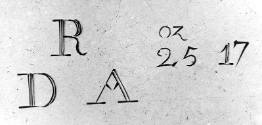 R oz
25 17
D A